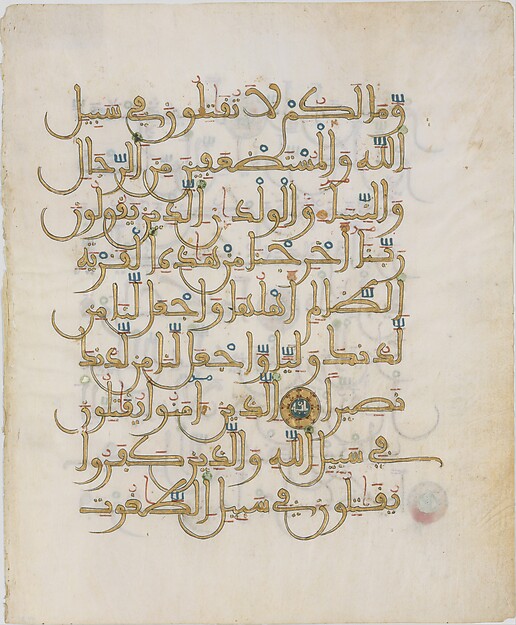 وما لكم لا تقتلون في سبيل
الله والمستضعفين من الرجال
والنساء والولدن الذين يقولون
ربنا اخرجنا من هذه القرية
الظلم اهلها واجعل لنا من
لدنك وليا واجعل لنا من لدنك
نصيرا الذين ءامنوا يقتلون
في سبيل الله والذين كفروا
يقتلون في سبيل الطغوت